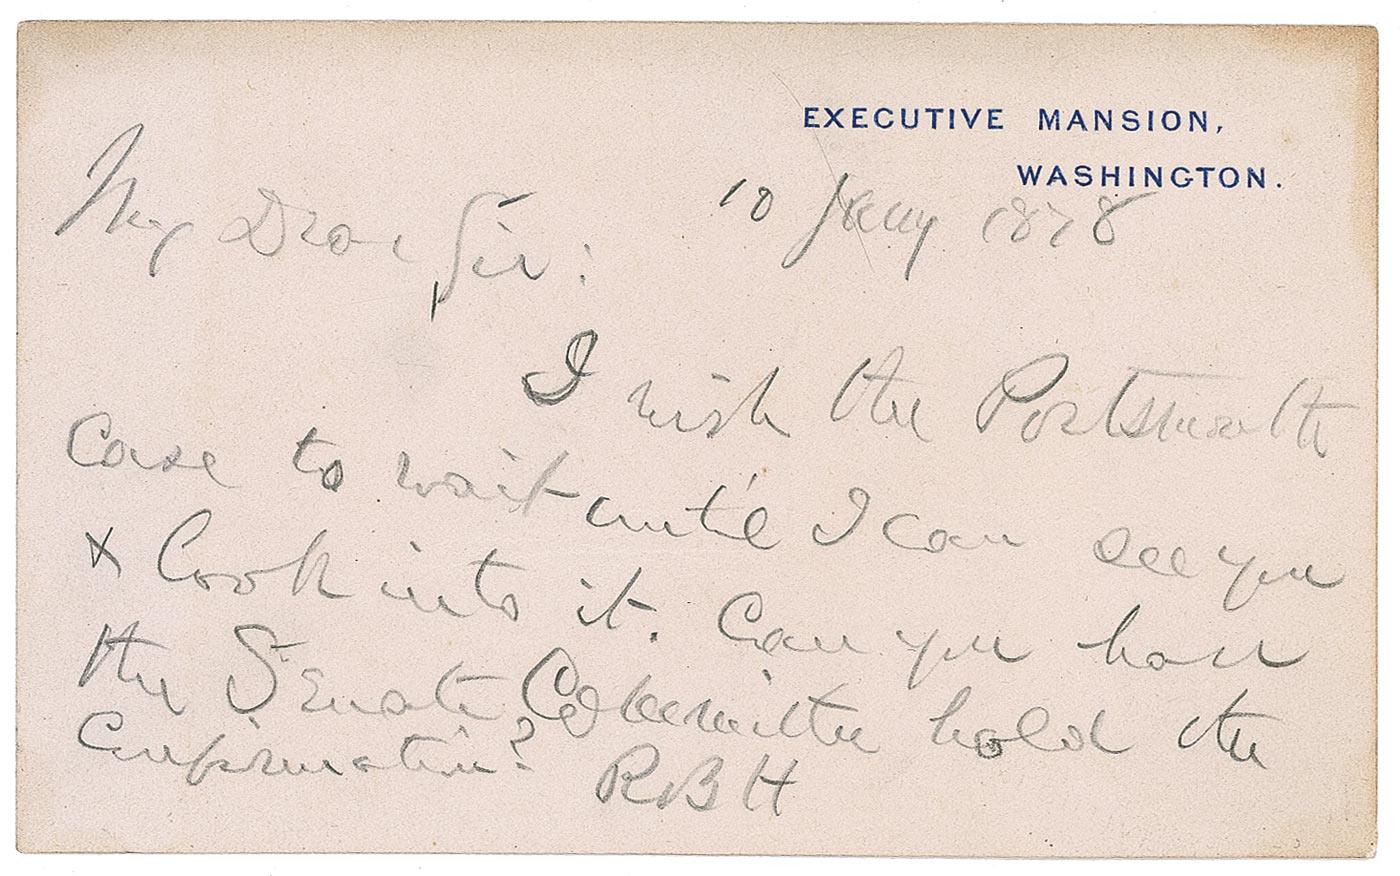 EXECUTIVE MANSION,
WASHINGTON.
10 Jany 1878
My Dear Sir:
I wish the Portsmouth
case to wait until I can see you
& look into it. Can you have
the Senate Committee hold the
confirmation? RBH